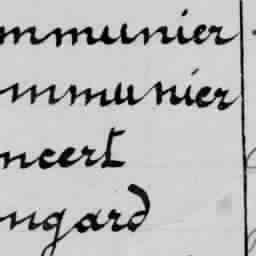 mmunier
mmunier
ncert
ngard